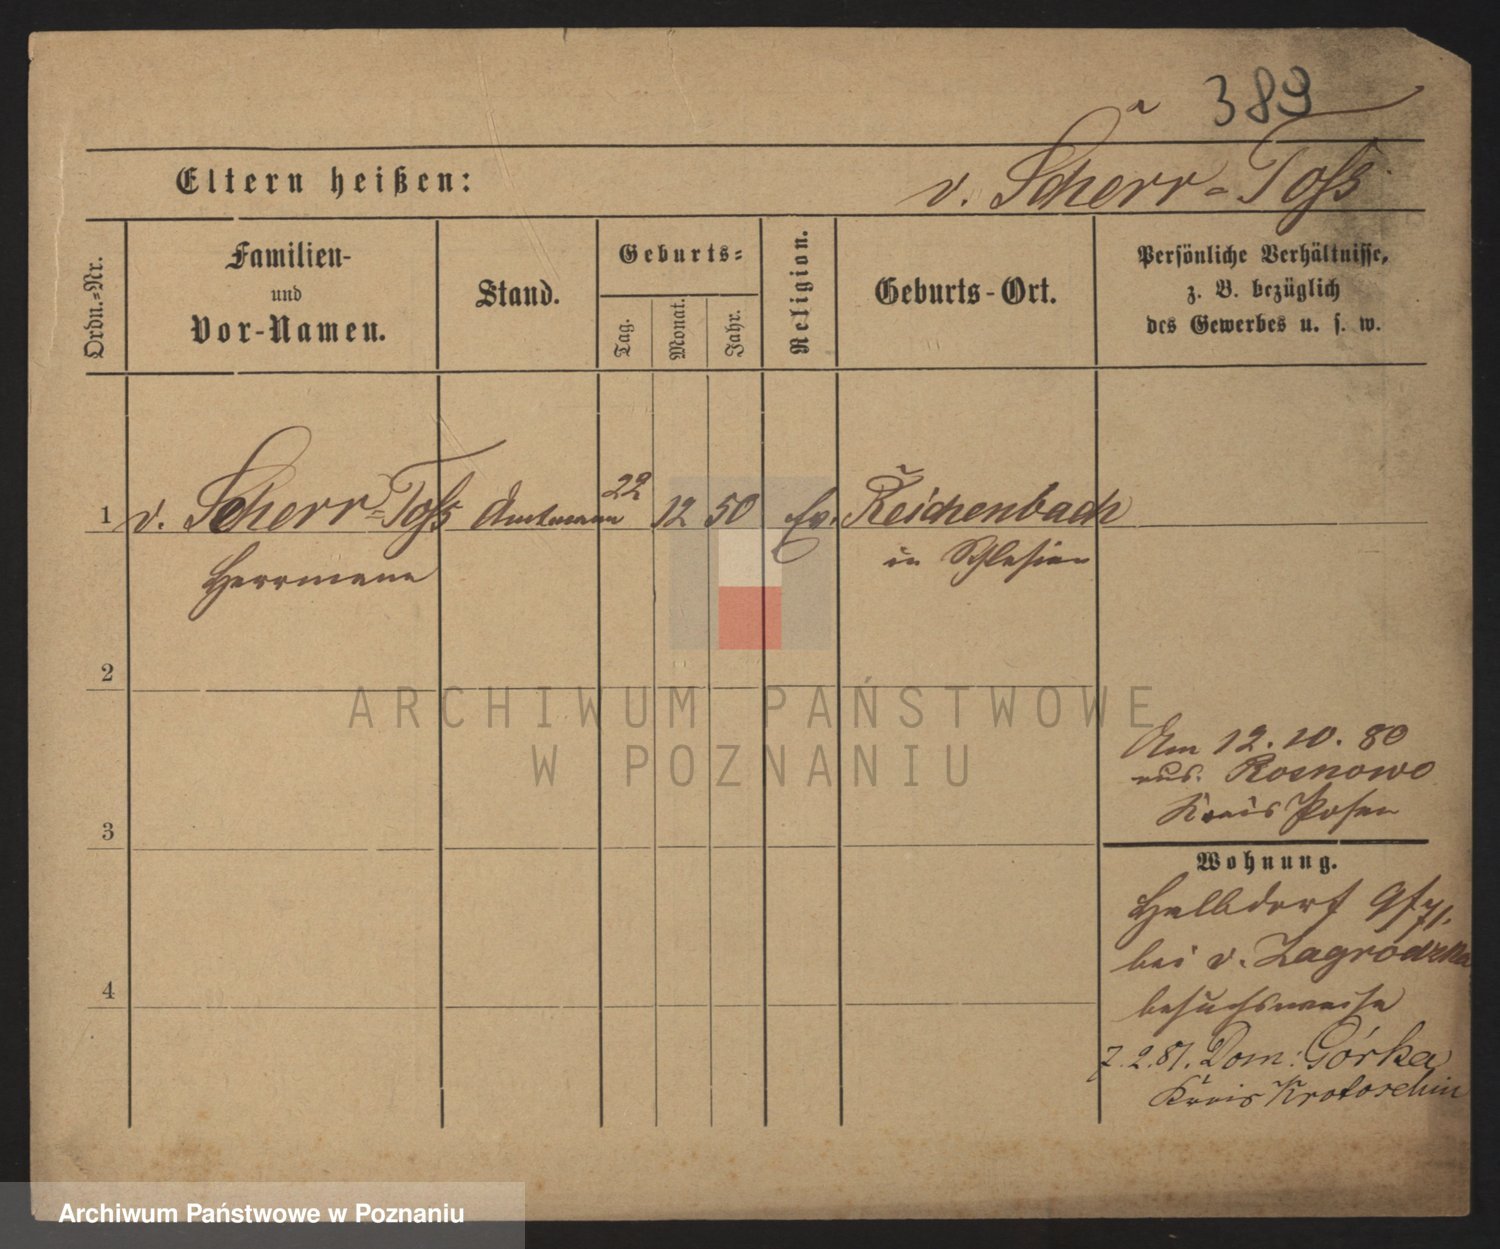 389
Eltern heißen:
v. Scherr-Toss
Ordn.-Nr.
Familien-
und
Vor-Namen.
Stand.
Geburts-
Tag.
Monat.
Jahr.
Religion.
Geburts-Ort.
Persönliche Verhältnisse,
z. B. bezüglich
des Gewerbes u. s. w.
1 v. Scherr-Toss Amtmann 22 12 50 Ev. Reichenbach
Herrmann in Schlesien
2
ARCHIWUM PAŃSTWOWE
W POZNANIU
Am 12.10.80
aus Rosnowo
Kreis Posen
3
Wohnung.
Halbdorf
bei v. Zagrodzka
besuchsweise
4
7.2.81. Dom: Górka
Kreis Krotoschin
Archiwum Państwowe w Poznaniu